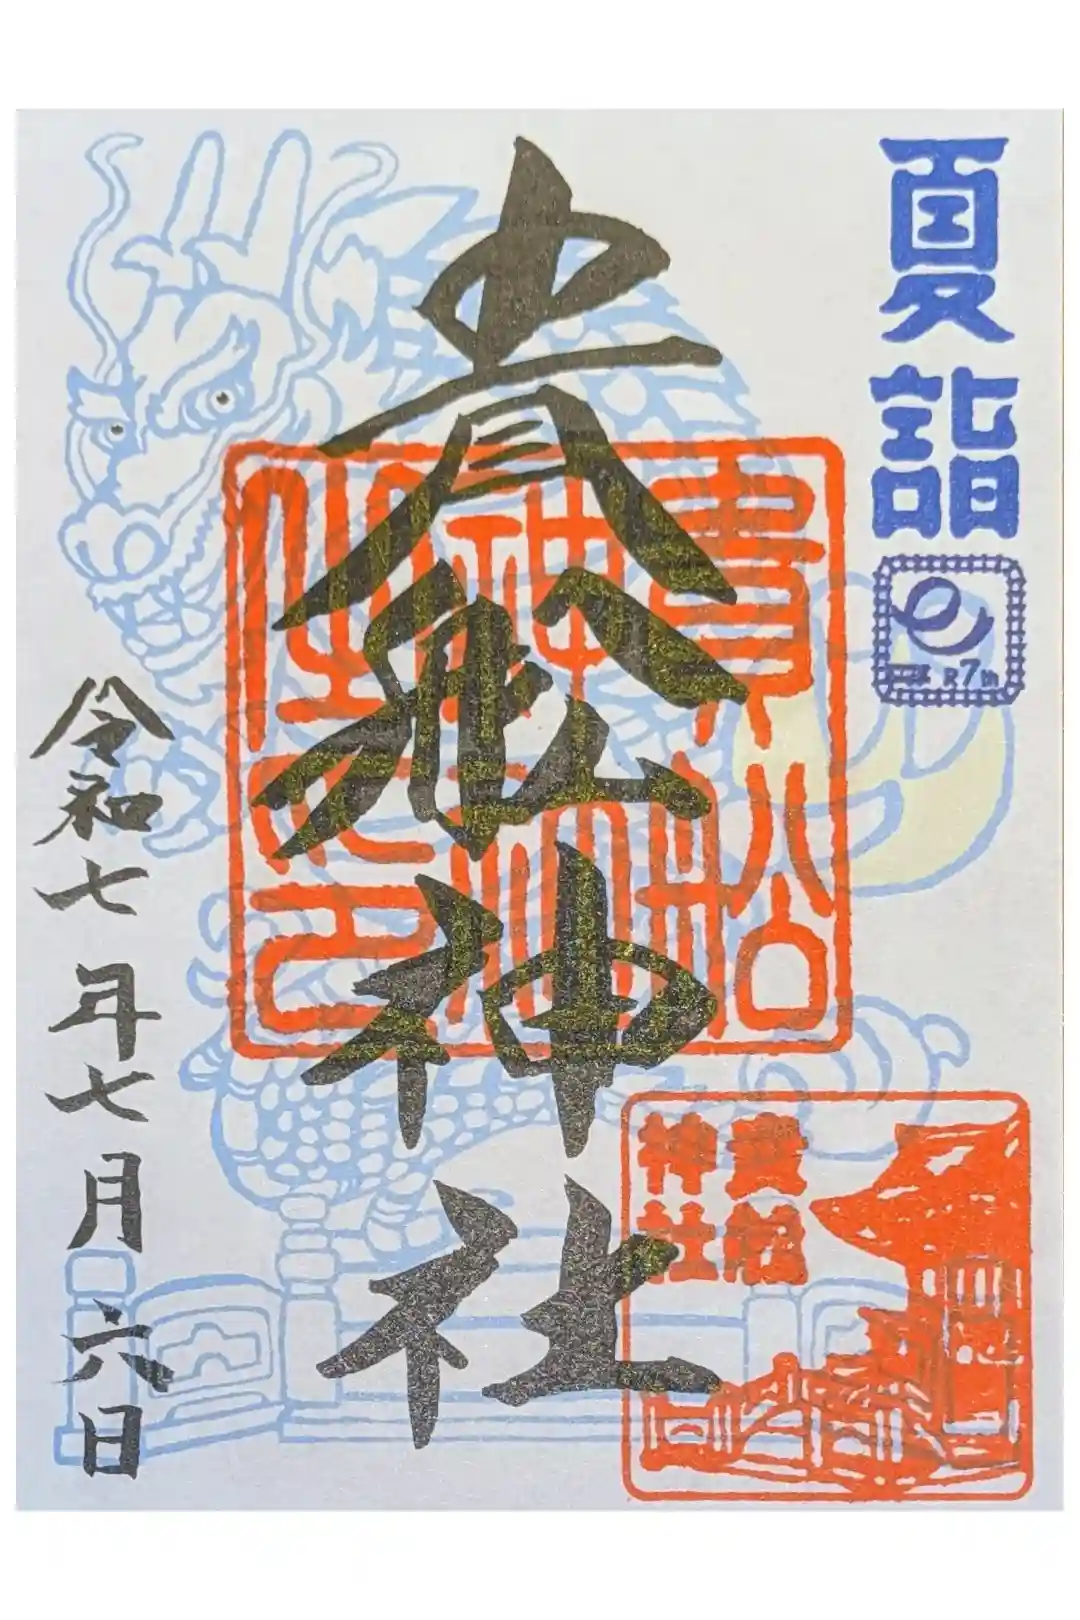 夏詣
R7th
貴船神社
貴船神社
令和七年七月六日